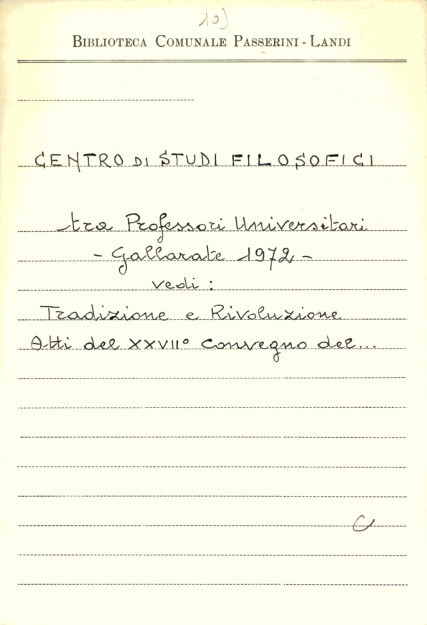 10)
BIBLIOTECA COMUNALE PASSERINI - LANDI
CENTRO DI STUDI FILOSOFICI
tra Professori Universitari
- Gallarate 1972 -
vedi :
Tradizione e Rivoluzione
Atti del XXVII° Convegno del...
C